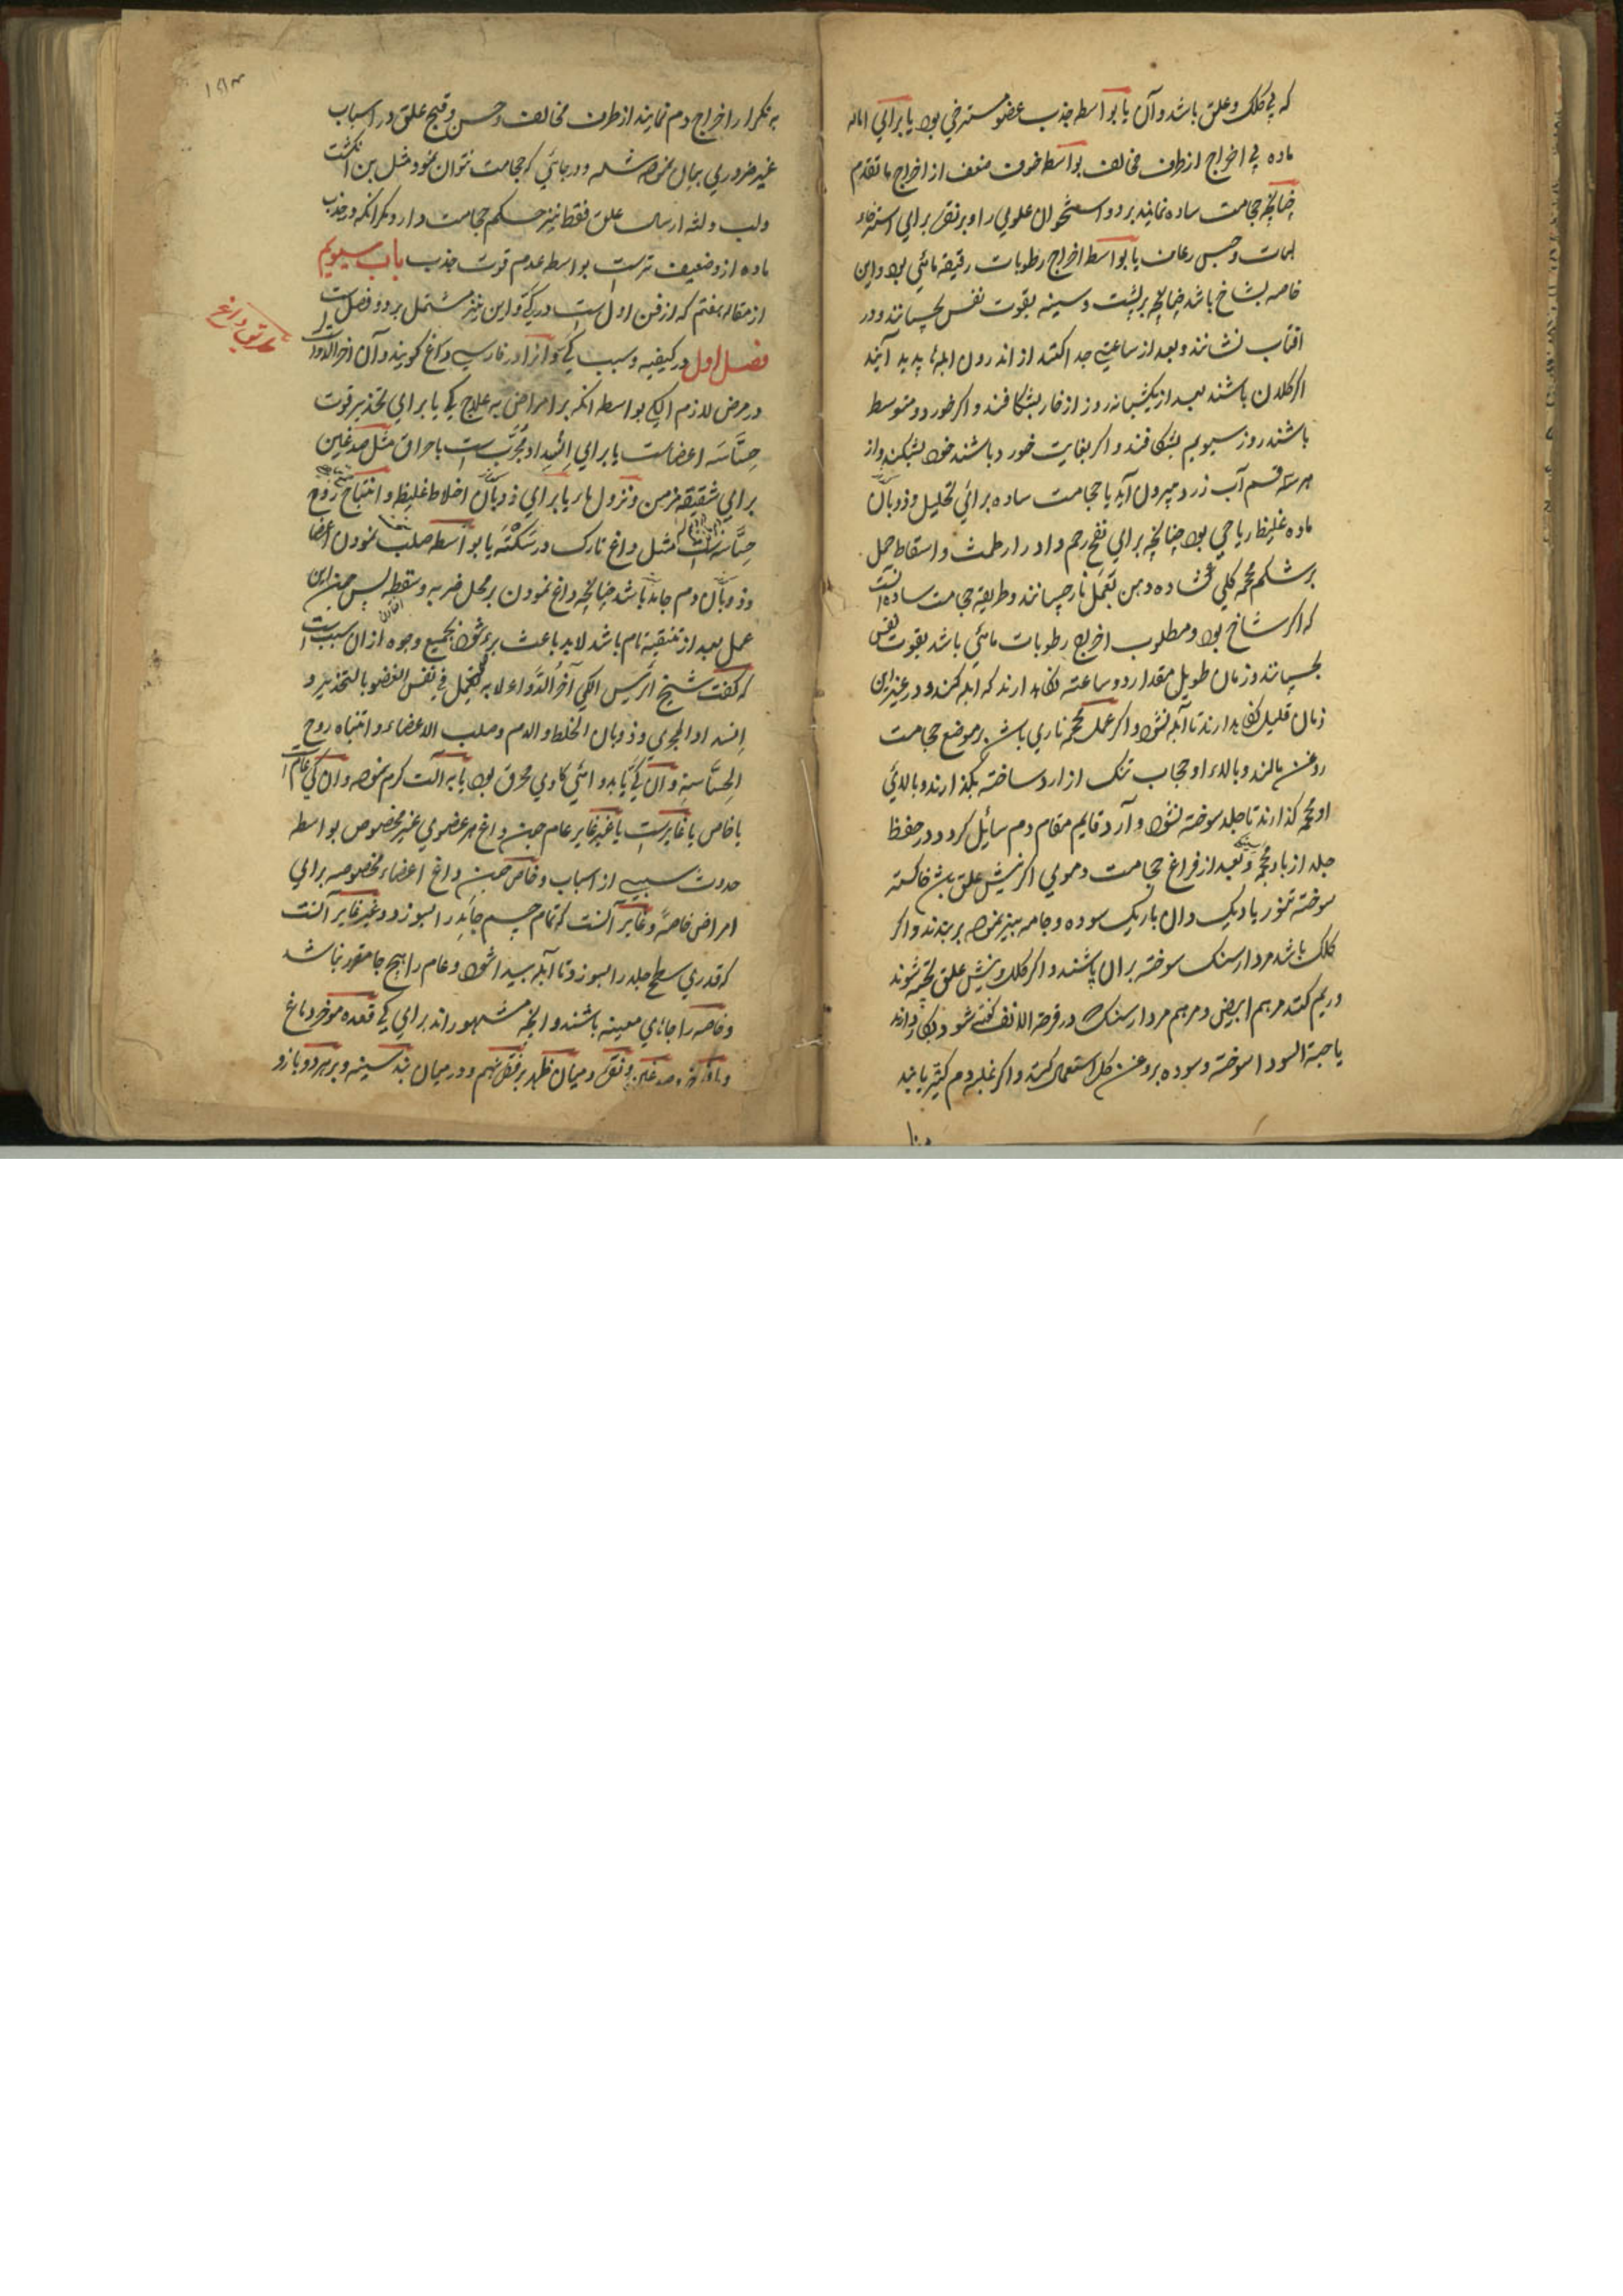 که بی کلک و علق باشد و آن یا بواسطه جذب عضو مسترخی بود یا برای اماله
ماده بی اخراج از طرف مخالف بواسطه خوف ضعف از اخراج ما تقدم
چنانچه حجامت ساده نمایند بر دو استخوان علوی را و بر نقره برای استرخاء
لهات و حبس رعاف یا بواسطه اخراج رطوبات رقیقه مائی بود و این
خاصه بشاخ باشد چنانچه بر پشت و سینه بقوت نفس بچسپانند و در
افتاب نشانند و بعد از ساعتی جدا کنند از اندرون ابله‌ها پدید آیند
اگر کلان باشند بعد از یکشبانه روز از خار بشکافند و اگر خورد و متوسط
باشند روز سیویم بشکافند و اگر بغایت خورد باشند خود بشکنند و از
هر سه قسم آب زرد بیرون آید یا حجامت ساده برائی تحلیل و ذوبان
ماده غلیظ ریاحی بود چنانچه برای نفخ رحم و ادرار طمث و اسقاط حمل
بر شکم محجمه گلی گشاده دهن بعمل نار چسپانند و طریقه حجامت ساده آنست
که اگر شاخ بود و مطلوب اخراج رطوبات مائی باشد بقوت نفس
بچسپانند و زمان طویل مقدار دو ساعته نگاهدارند که ابله کند و در غیر این
زمان قلیل نگاهدارند تا آبله نشود و اگر عمل محجمه ناری باشد بر موضع حجامت
روغن مالند و بالاء او حجاب تنک از ارد ساخته بگذارند و بالائی
او محجمه گذارند تا جلد سوخته نشود و آرد قایم مقام دم سائیل گردد در حفظ
جلد از باد محجمه و بعد از فراغ حجامت دموی اگر نیش علق باشد خاکستر
سوخته تنور یا دیک دان باریک سوده و جامه بیز نموده بر بندند و اگر
کلک باشد مردارسنک سوخته بران پاشند و اگر کلک و نیش علق پخته شوند
و ریم کنند مرهم ابیض و مرهم مردارسنک که در قرحة الانف گفته شود بکار دارند
یا حبة السودا سوخته و سوده بروغن گل استعمال کنند و اگر غلبه دم کثیر یابند
به تکرار اخراج دم نمایند از طرف مخالف و حسن و قبح علق در اسباب
غیر ضروری بیان نموده شد و در جائی که حجامت نتوان نمود مثل بن انگشت
و لب و لثه ارسال علق فقط نیز حکم حجامت دارد مگر انکه در جذب
ماده از و ضعیف‌تر است بواسطه عدم قوت جذب باب سیویم
از مقاله هفتم که از فن اول است در کی و این نیز مشتمل بر دو فصل است
طریق داغ
فصل اول در کیفیه و سبب کی و آنرا در فارسی داغ گویند و آن آخر الادواست
در مرض لازم الکی بواسطه انکه بر امراض به علاج کی یا برای تخدیر قوت
حساسه اعضاست یا برای انسداد مجری است باحراق مثل صدغین
برای شقیقه مزمن و نزول ما و یا برای ذوبان اخلاط غلیظ و انتباه روح
حساسه است مثل داغ تارک در سکته یا بواسطه صلب نمودن اعضا
و ذوبان دم جامد باشد چنانچه داغ نمودن بر محل ضربه و سقطه پس چون این
عمل بعد از تنقیه تام باشد لابد باعث برء شود بجمیع وجوه از ان سبب است
که گفت شیخ الرئیس الکی آخر الدواء لانه یعمل فی نفس العضو بالتخذیر و
انسداد المجری و ذوبان الخلط و الدم و صلب الاعضاء و انتباه روح
الحساسة و آن کی یا بدوائی کاوی محرق بود یا به آلت گرم نموده و آن کی عام است
یا خاص یا غایر است یا غیر غایر عام چون داغ هر عضوی غیر مخصوص بواسطه
حدوث سببی از اسباب و خاص چون داغ اعضاء مخصوصه برای
امراض خاصه و غایر آنست که تمام جسم جلد را بسوزد و غیر غایر آنست
که قدری سطح جلد را بسوزد تا آبله پیدا شود و عام را هیچ جا مقرر نباشد
و خاصه را جاهای معینه باشند و انچه مشهور اند برای کی قعده موخر دماغ
و صدغین و نقره و میان ظهر بر فقره نهم و در میان بند سینه و بر هر دو بازو